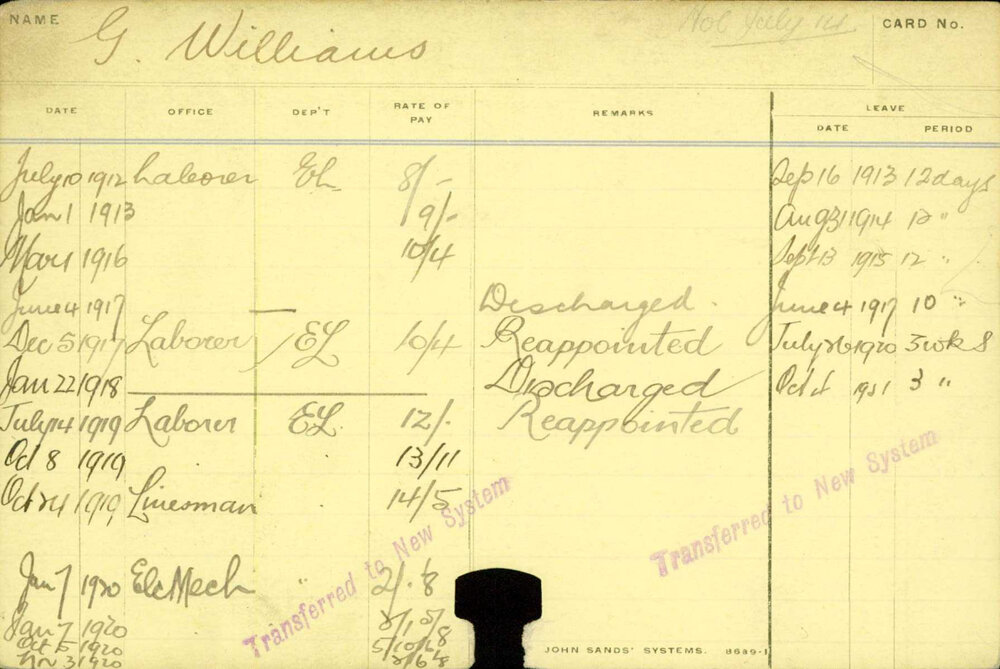 NAME G. Williams Hol July 14 CARD No.
DATE OFFICE DEP'T RATE OF PAY REMARKS LEAVE
DATE PERIOD
July 10 1912 Laborer EL 8/- Sep 16 1913 12 days
Jan 1 1913 9/- Aug 31 1914 12 "
Mar 1 1916 10/4 Sept 13 1915 12 "
June 4 1917 — Discharged. June 4 1917 10 "
Dec 5 1917 Laborer EL 10/4 Reappointed July 26 1920 3 wks
Jan 22 1918 — Discharged Oct 1921 3 "
July 14 1919 Laborer EL 12/- Reappointed
Oct 8 1919 13/11
Oct 24 1919 Linesman 14/5
Transferred to New System
Transferred to New System
Jan 7 1920 Elc Mech
Jan 7 1920
Oct 5 1920
Nov 3 1920
JOHN SANDS' SYSTEMS. 8689-1